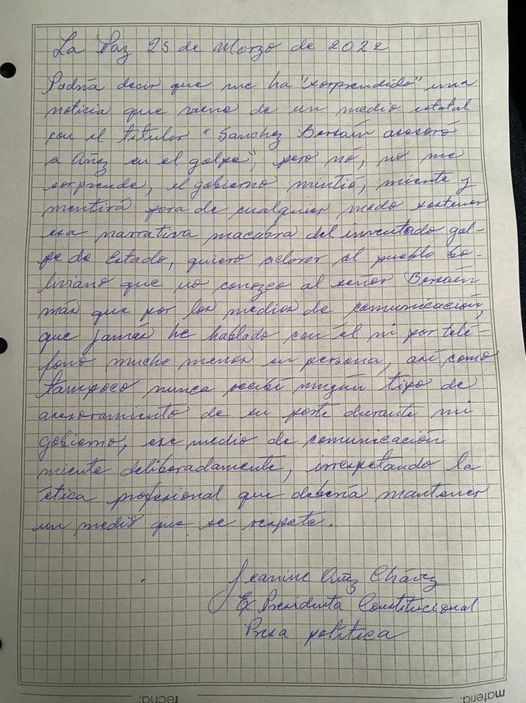 La Paz 25 de Marzo de 2022
Podría decir que me ha "sorprendido" una
noticia que viene de un medio estatal
con el titular "Sanchez Berzaín asesoró
a Añez en el golpe", pero nó, no me
sorprende, el gobierno mintió, miente y
mentirá para de cualquier modo sostener
esa narrativa macabra del inventado gol-
pe de Estado, quiero aclarar al pueblo bo-
liviano que no conozco al señor Berzaín
más que por los medios de comunicación,
que jamás he hablado con él ni por telé-
fono mucho menos en persona, así como
tampoco nunca recibí ningún tipo de
asesoramiento de su parte durante mi
gobierno, ese medio de comunicación
miente deliberadamente, irrespetando la
ética profesional que debería mantener
un medio que se respete.
Jeanine Añez Chávez
Ex Presidenta Constitucional
Presa política
materia: fecha: